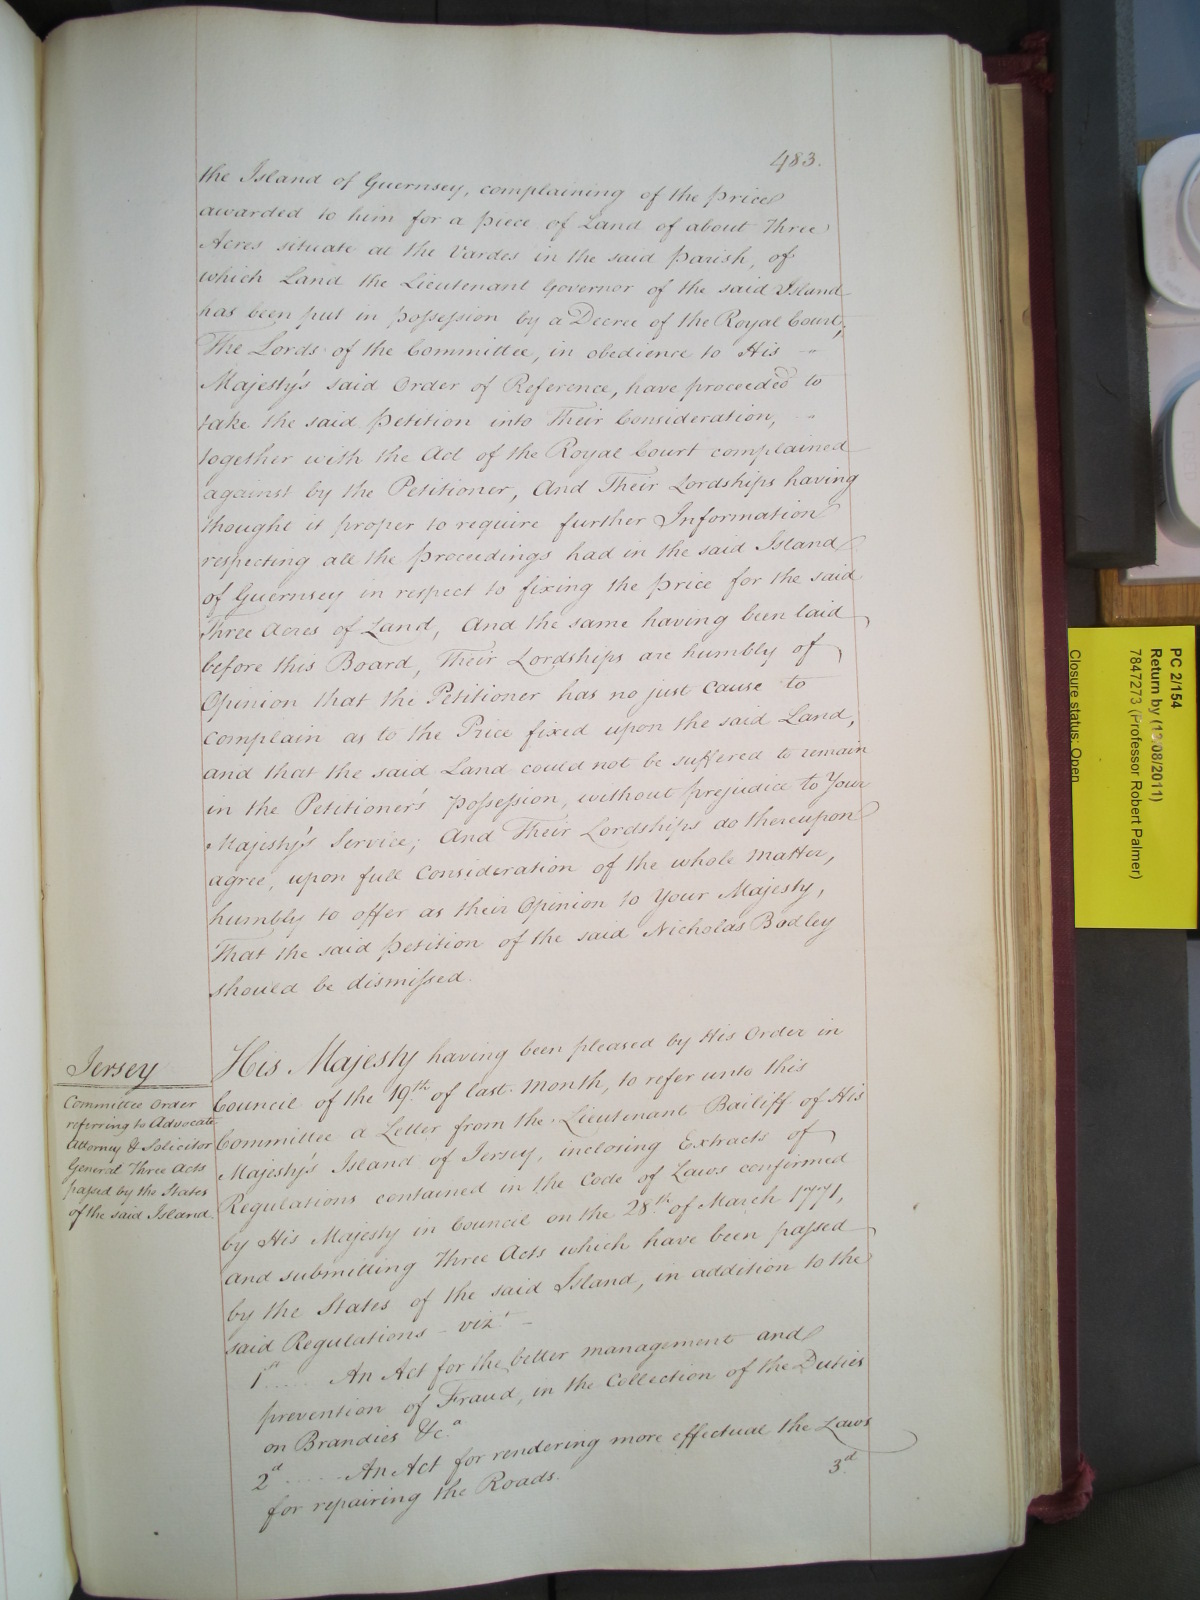 483.
the Island of Guernsey, complaining of the price
awarded to him for a piece of Land of about Three
Acres situate at the Vardes in the said Parish, of
which Land the Lieutenant Governor of the said Island
has been put in possession by a Decree of the Royal Court;
The Lords of the Committee, in obedience to His
Majesty's said Order of Reference, have proceeded to
take the said Petition into Their Consideration,
together with the Act of the Royal Court complained
against by the Petitioner, And Their Lordships having
thought it proper to require further Information
respecting all the proceedings had in the said Island
of Guernsey in respect to fixing the price for the said
Three Acres of Land, And the same having been laid
before this Board, Their Lordships are humbly of
Opinion that the Petitioner has no just cause to
complain as to the Price fixed upon the said Land,
and that the said Land could not be suffered to remain
in the Petitioner's possession, without prejudice to Your
Majesty's Service; And Their Lordships do thereupon
agree, upon full Consideration of the whole Matter,
humbly to offer as their Opinion to Your Majesty,
That the said petition of the said Nicholas Badley
should be dismissed.
Jersey
Committee Order
referring to Advocate
Attorney & Solicitor
General Three Acts
passed by the States
of the said Island.
His Majesty having been pleased by His Order in
Council of the 19th. of last Month, to refer unto this
Committee a Letter from the Lieutenant Bailiff of His
Majesty's Island of Jersey, inclosing Extracts of
Regulations contained in the Code of Laws confirmed
by His Majesty in Council on the 28th of March 1771,
and submitting Three Acts which have been passed
by the States of the said Island, in addition to the
said Regulations - vizt. -
1st ..... An Act for the better management and
prevention of Fraud, in the Collection of the Duties
on Brandies &c.a
2d ..... An Act for rendering more effectual the Laws
for repairing the Roads.
3d
PC 2/154
Return by (12/08/2011)
7847273 (Professor Robert Palmer)
Closure status: Open